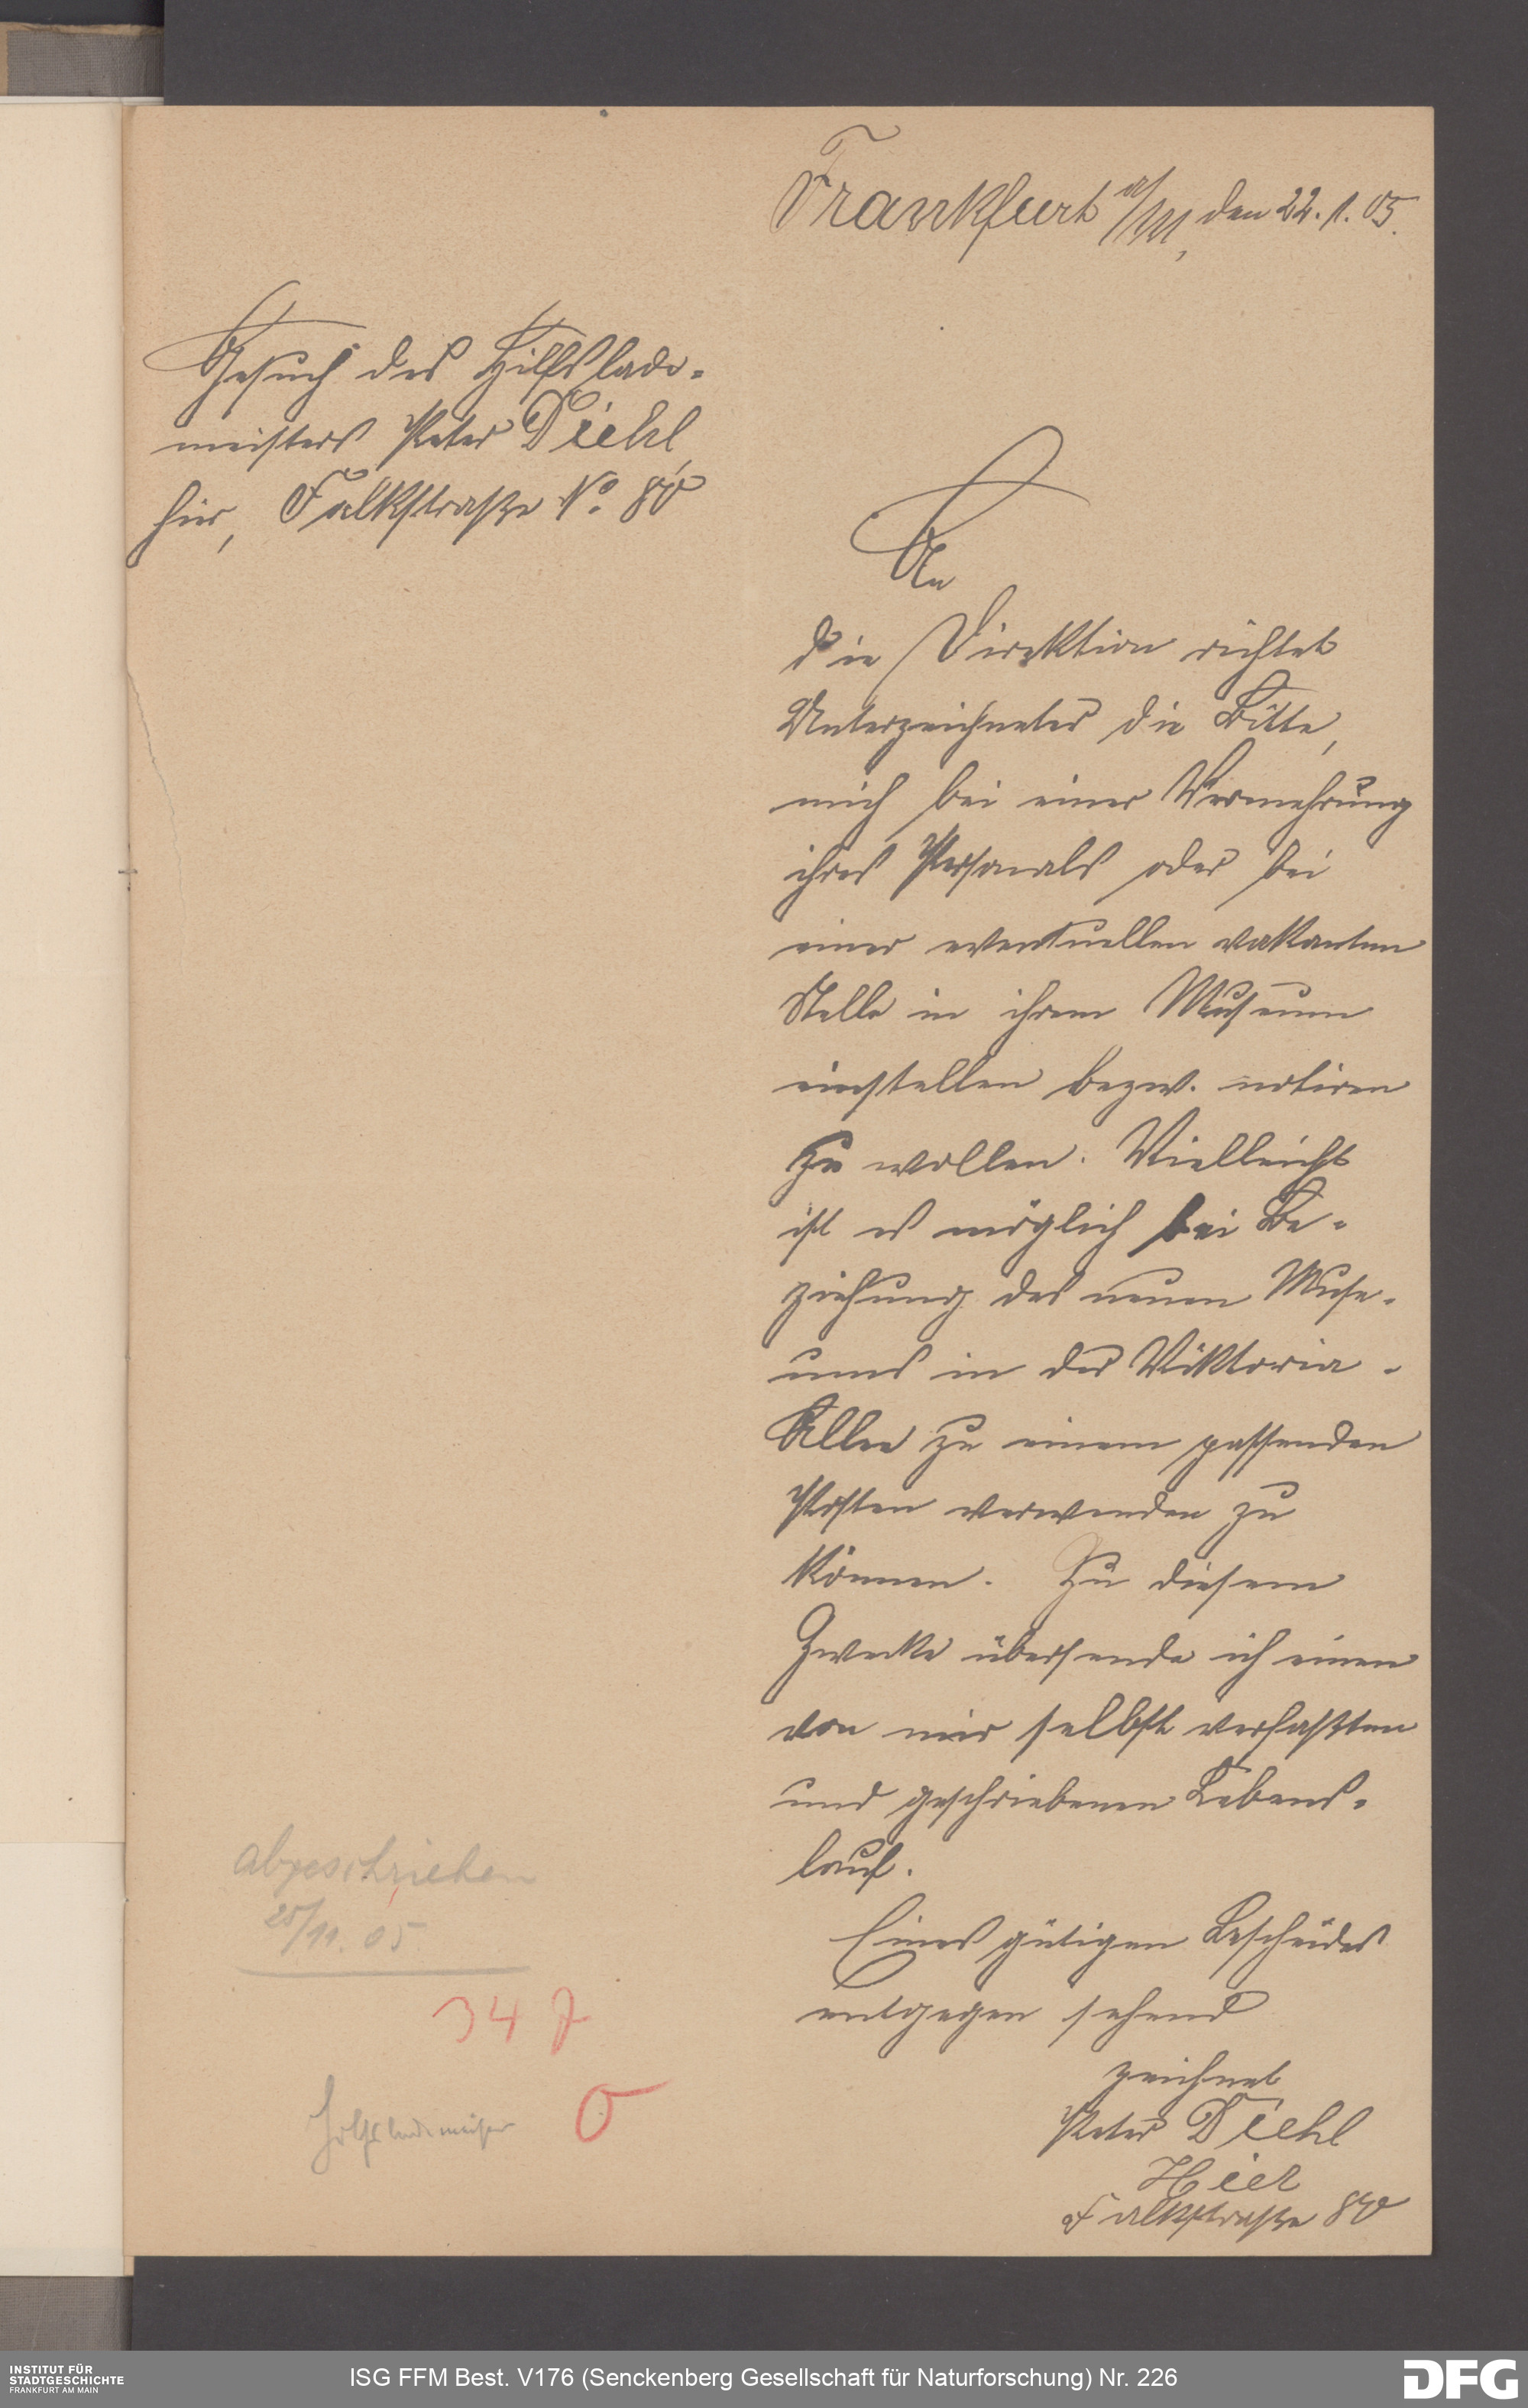 Frankfurt a/M, den 22.1.05.
Gesuch des Hilfslade-
meisters Peter Diehl,
hier, Falkstraße No. 80
An
die Direktion richtet
Unterzeichneter die Bitte,
mich bei einer Vermehrung
ihres Personals oder bei
einer eventuellen vakanten
Stelle in ihrem Museum
einstellen bezw. notiren
zu wollen. Vielleicht
ist es möglich bei Be-
ziehung des neuen Muse-
ums in der Viktoria-
Allee zu einem passenden
Posten verwenden zu
können. Zu diesem
Zwecke übersende ich einen
von mir selbst verfaßten
und geschriebenen Lebens-
lauf.
Eines gütigen Bescheides
entgegen sehend
zeichnet
Peter Diehl
Hier
Falkstraße 80
abgeschrieben
25/11.05
34
Hilfslademeister
INSTITUT FÜR
STADTGESCHICHTE
FRANKFURT AM MAIN
ISG FFM Best. V176 (Senckenberg Gesellschaft für Naturforschung) Nr. 226
DFG